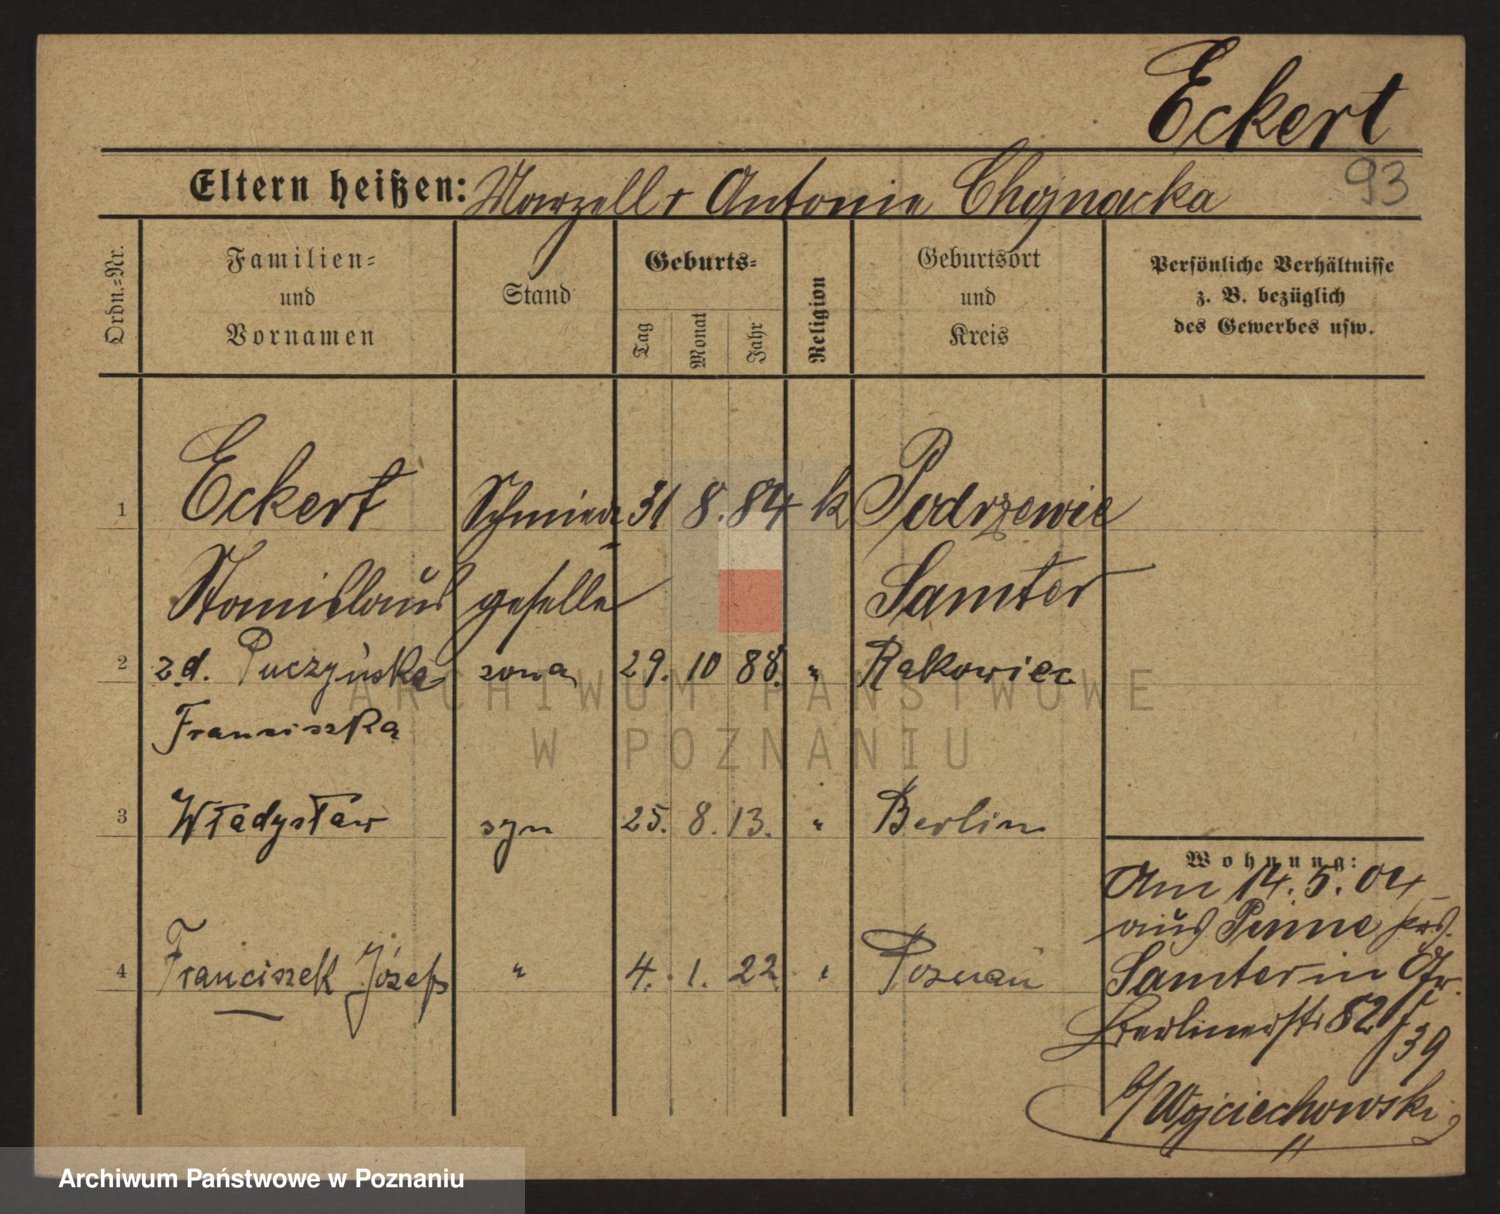 Eckert
Eltern heißen: Marzell & Antonie Chojnacka
93
Ordn.-Nr.
Familien- und Vornamen
Stand
Geburts-
Tag Monat Jahr
Religion
Geburtsort und Kreis
Persönliche Verhältnisse
z. B. bezüglich
des Gewerbes usw.
1 Eckert Schmiede 31 8. 84 k Podrzewie
Stanislaus geselle Samter
2 z.d. Puczyńska żona 29. 10 88. " Rakowiec
Franciszka
3 Władysław syn 25. 8. 13. " Berlin
4 Franciszek Józef " 4. 1. 22 " Poznań
Wohnung:
Am 14. 5. 04
aus Pinne
Samter in
Berlinerstr 82
39
b/Wojciechowski
ARCHIWUM PAŃSTWOWE
W POZNANIU
Archiwum Państwowe w Poznaniu